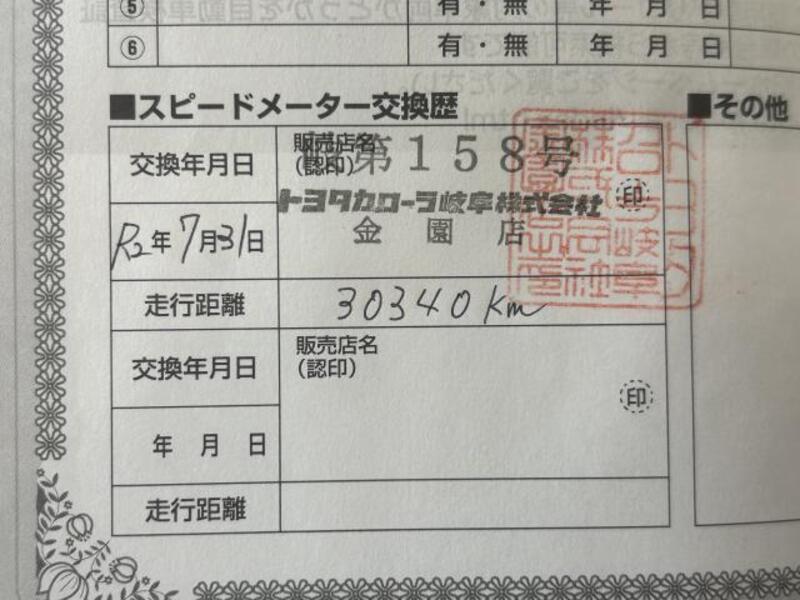 ⑤ 有・無 年 月 日
⑥ 有・無 年 月 日
■スピードメーター交換歴
■その他
交換年月日
販売店名
(認印)
第158号
トヨタカローラ岐阜株式会社
金園店
印
R2年7月31日
走行距離
30340km
交換年月日
販売店名
(認印)
印
年 月 日
走行距離